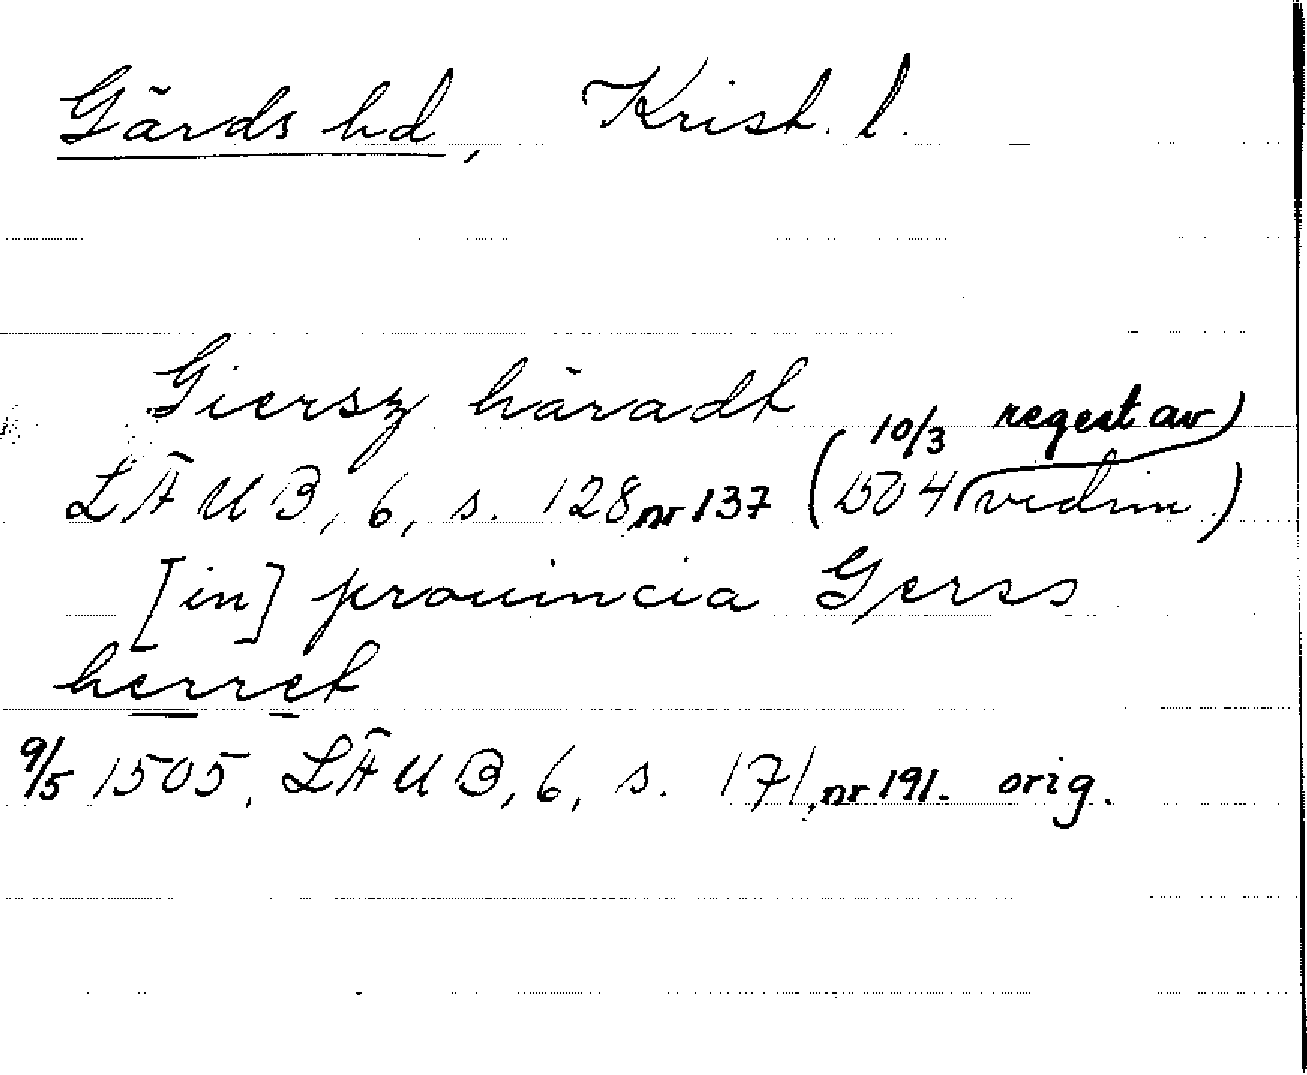 Gärds hd, Krist. l.
Giersz häradt
LÄUB, 6, s. 128, nr 137 (10/3 1504 regest av vidim.)
[in] prouincia Gerss
herret
9/5 1505. LÄUB, 6, s. 171, nr 191. orig.